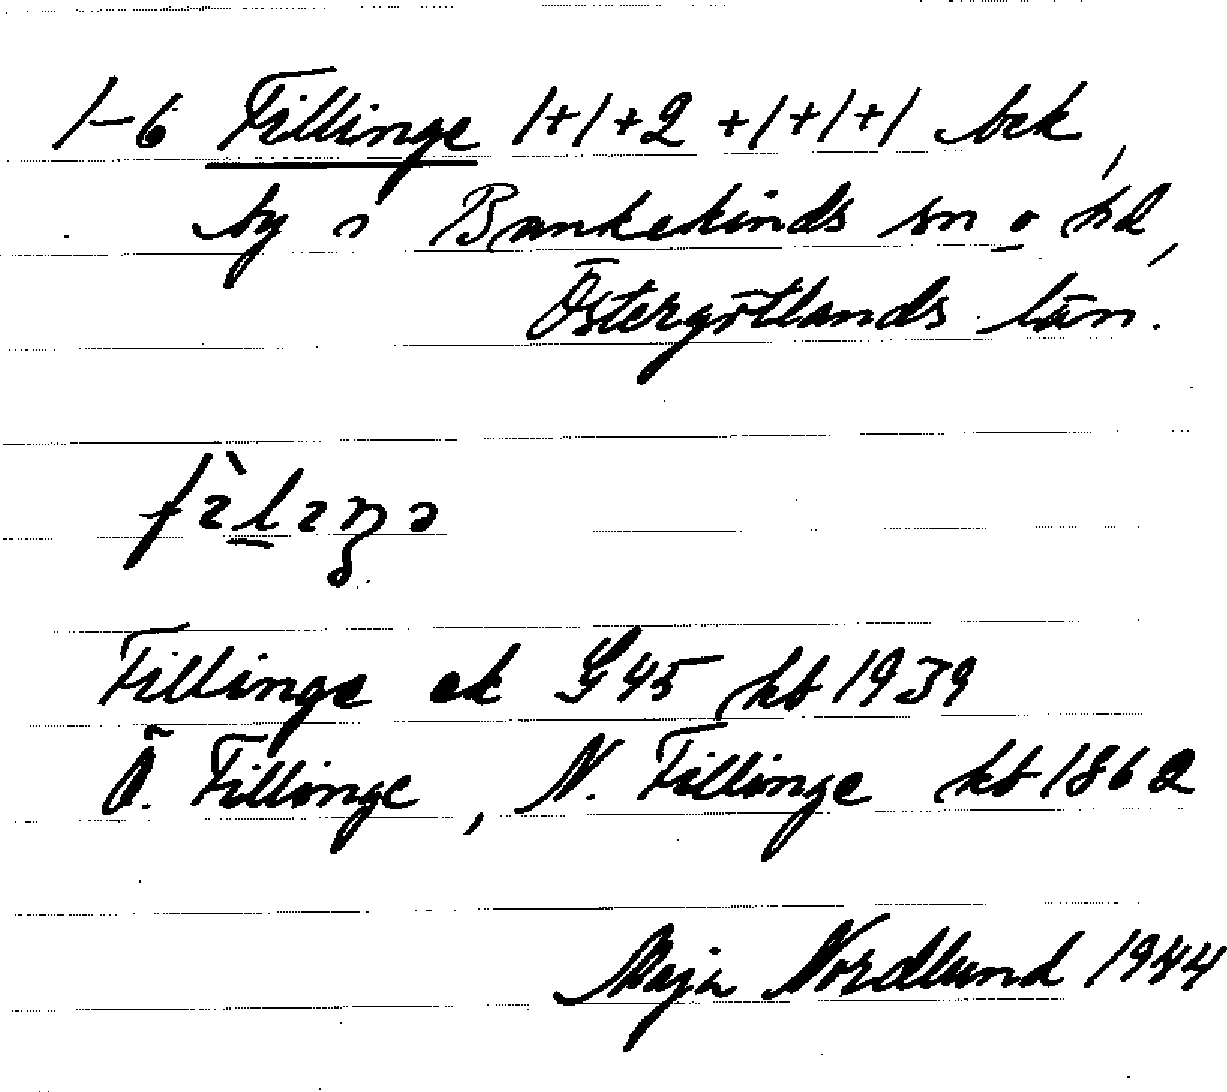 1-6 Fillinge 1+1+2+1+1+1 bck,
by i Bankekinds sn o hd,
Östergötlands län.
fìlıŋə
Fillinge ek G 45 kb 1939
Ö. Fillinge, N. Fillinge kb 1862
Maja Nordlund 1944